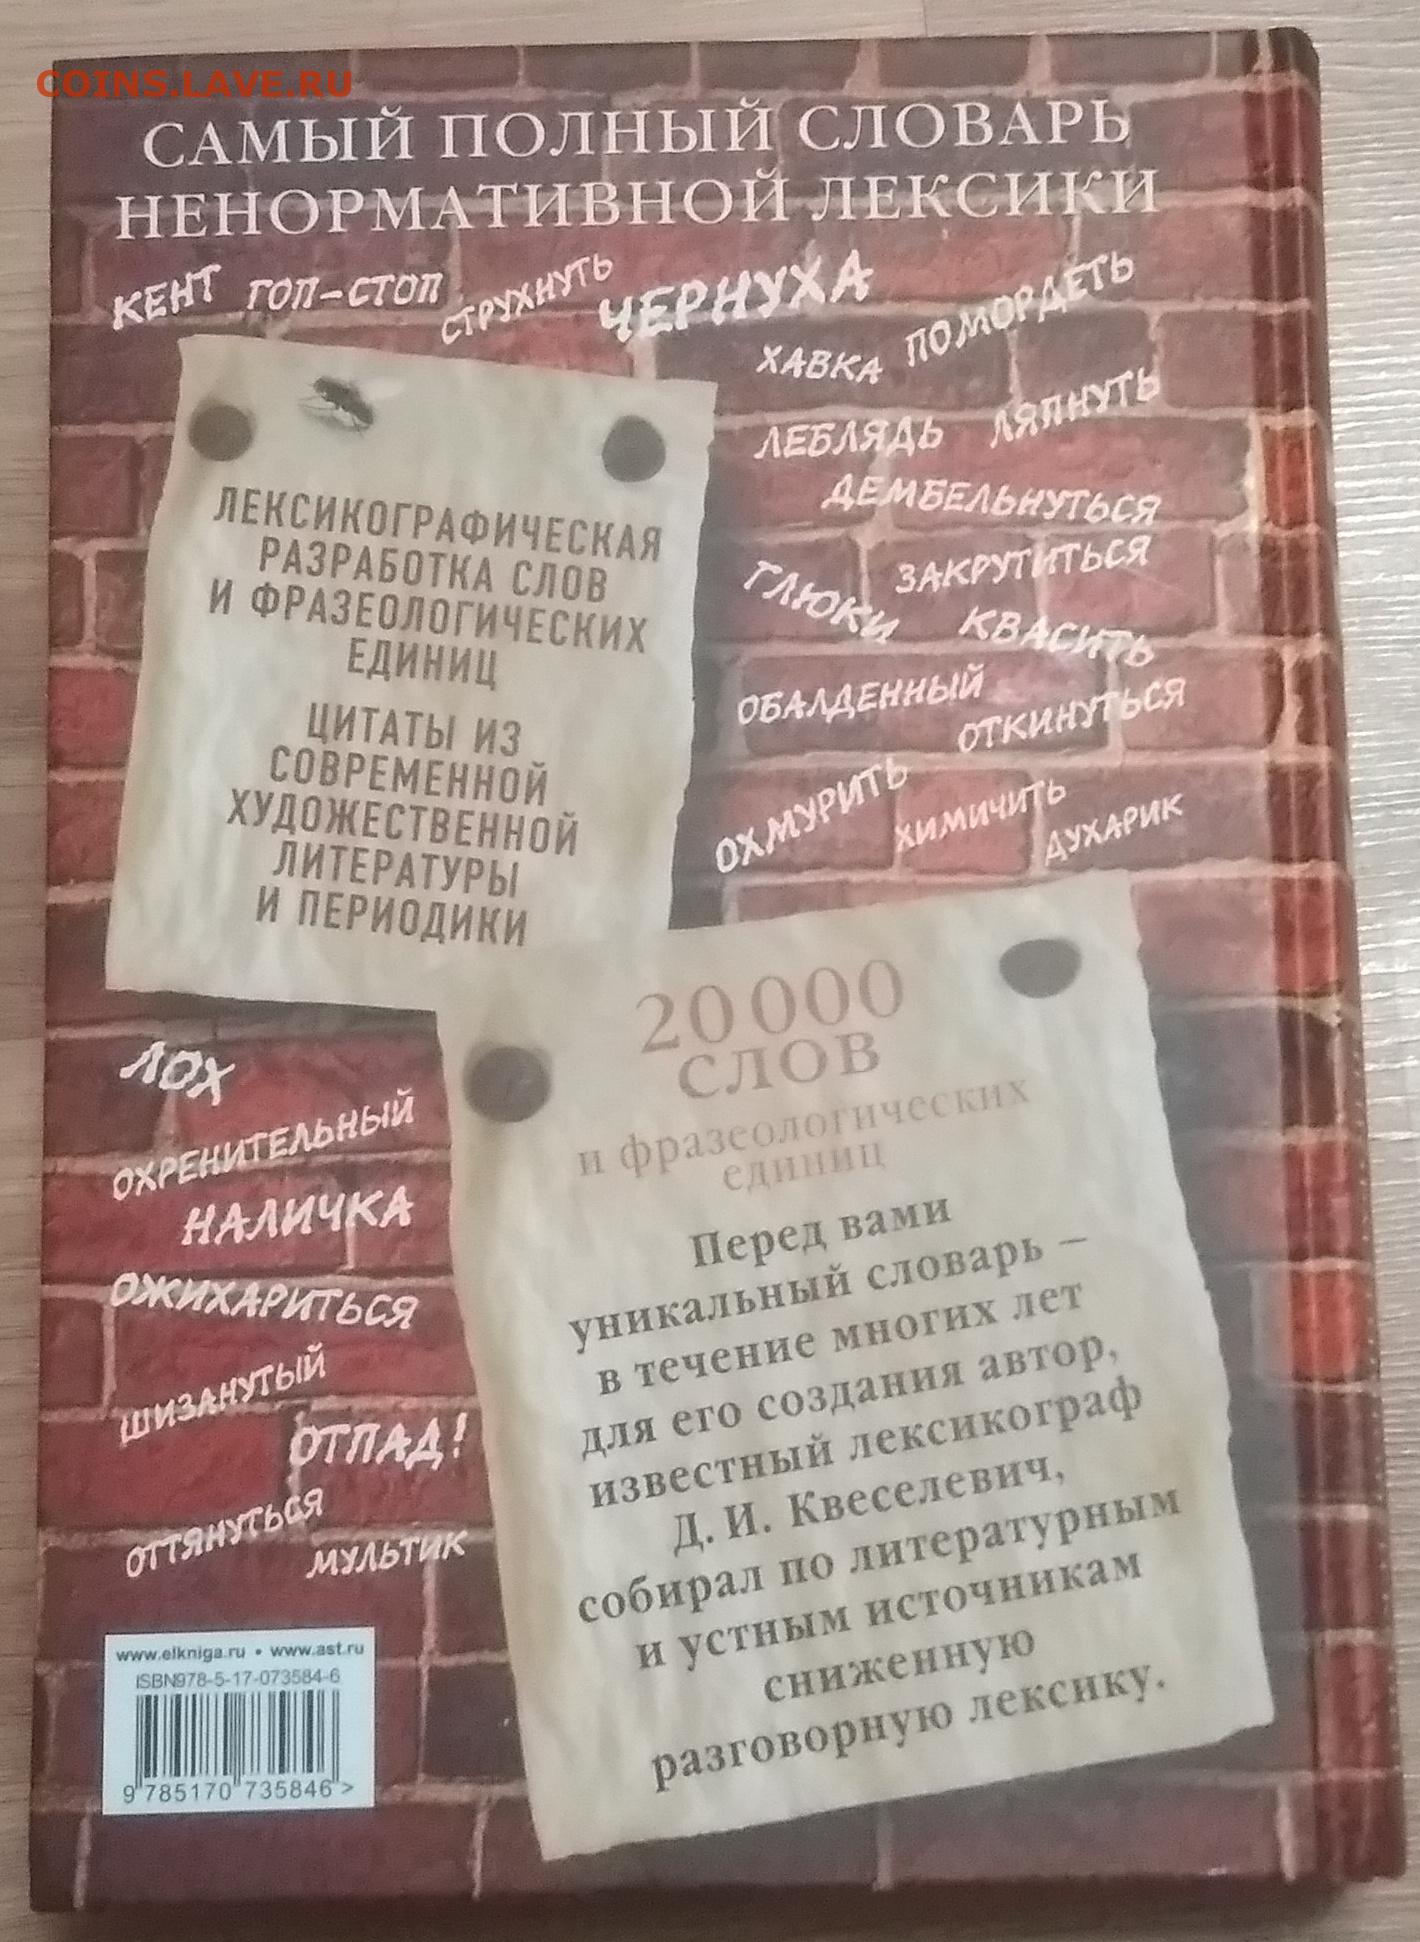 COINS.LAVE.RU
САМЫЙ ПОЛНЫЙ СЛОВАРЬ
НЕНОРМАТИВНОЙ ЛЕКСИКИ
КЕНТ ГОП-СТОП СТРУХНУТЬ ЧЕРНУХА
ХАВКА ПОМОРДЕТЬ
ЛЕБЛЯДЬ ЛЯПНУТЬ
ДЕМБЕЛЬНУТЬСЯ
ГЛЮКИ ЗАКРУТИТЬСЯ
КВАСИТЬ
ОБАЛДЕННЫЙ
ОТКИНУТЬСЯ
ОХМУРИТЬ ХИМИЧИТЬ ДУХАРИК
ЛЕКСИКОГРАФИЧЕСКАЯ
РАЗРАБОТКА СЛОВ
И ФРАЗЕОЛОГИЧЕСКИХ
ЕДИНИЦ
ЦИТАТЫ ИЗ
СОВРЕМЕННОЙ
ХУДОЖЕСТВЕННОЙ
ЛИТЕРАТУРЫ
И ПЕРИОДИКИ
20 000
СЛОВ
и фразеологических
единиц
Перед вами
уникальный словарь –
в течение многих лет
для его создания автор,
известный лексикограф
Д. И. Квеселевич,
собирал по литературным
и устным источникам
сниженную
разговорную лексику.
ЛОХ
ОХРЕНИТЕЛЬНЫЙ
НАЛИЧКА
ОЖИХАРИТЬСЯ
ШИЗАНУТЫЙ
ОТПАД!
ОТТЯНУТЬСЯ
МУЛЬТИК
www.elkniga.ru • www.ast.ru
ISBN978-5-17-073584-6
9 785170 735846 >